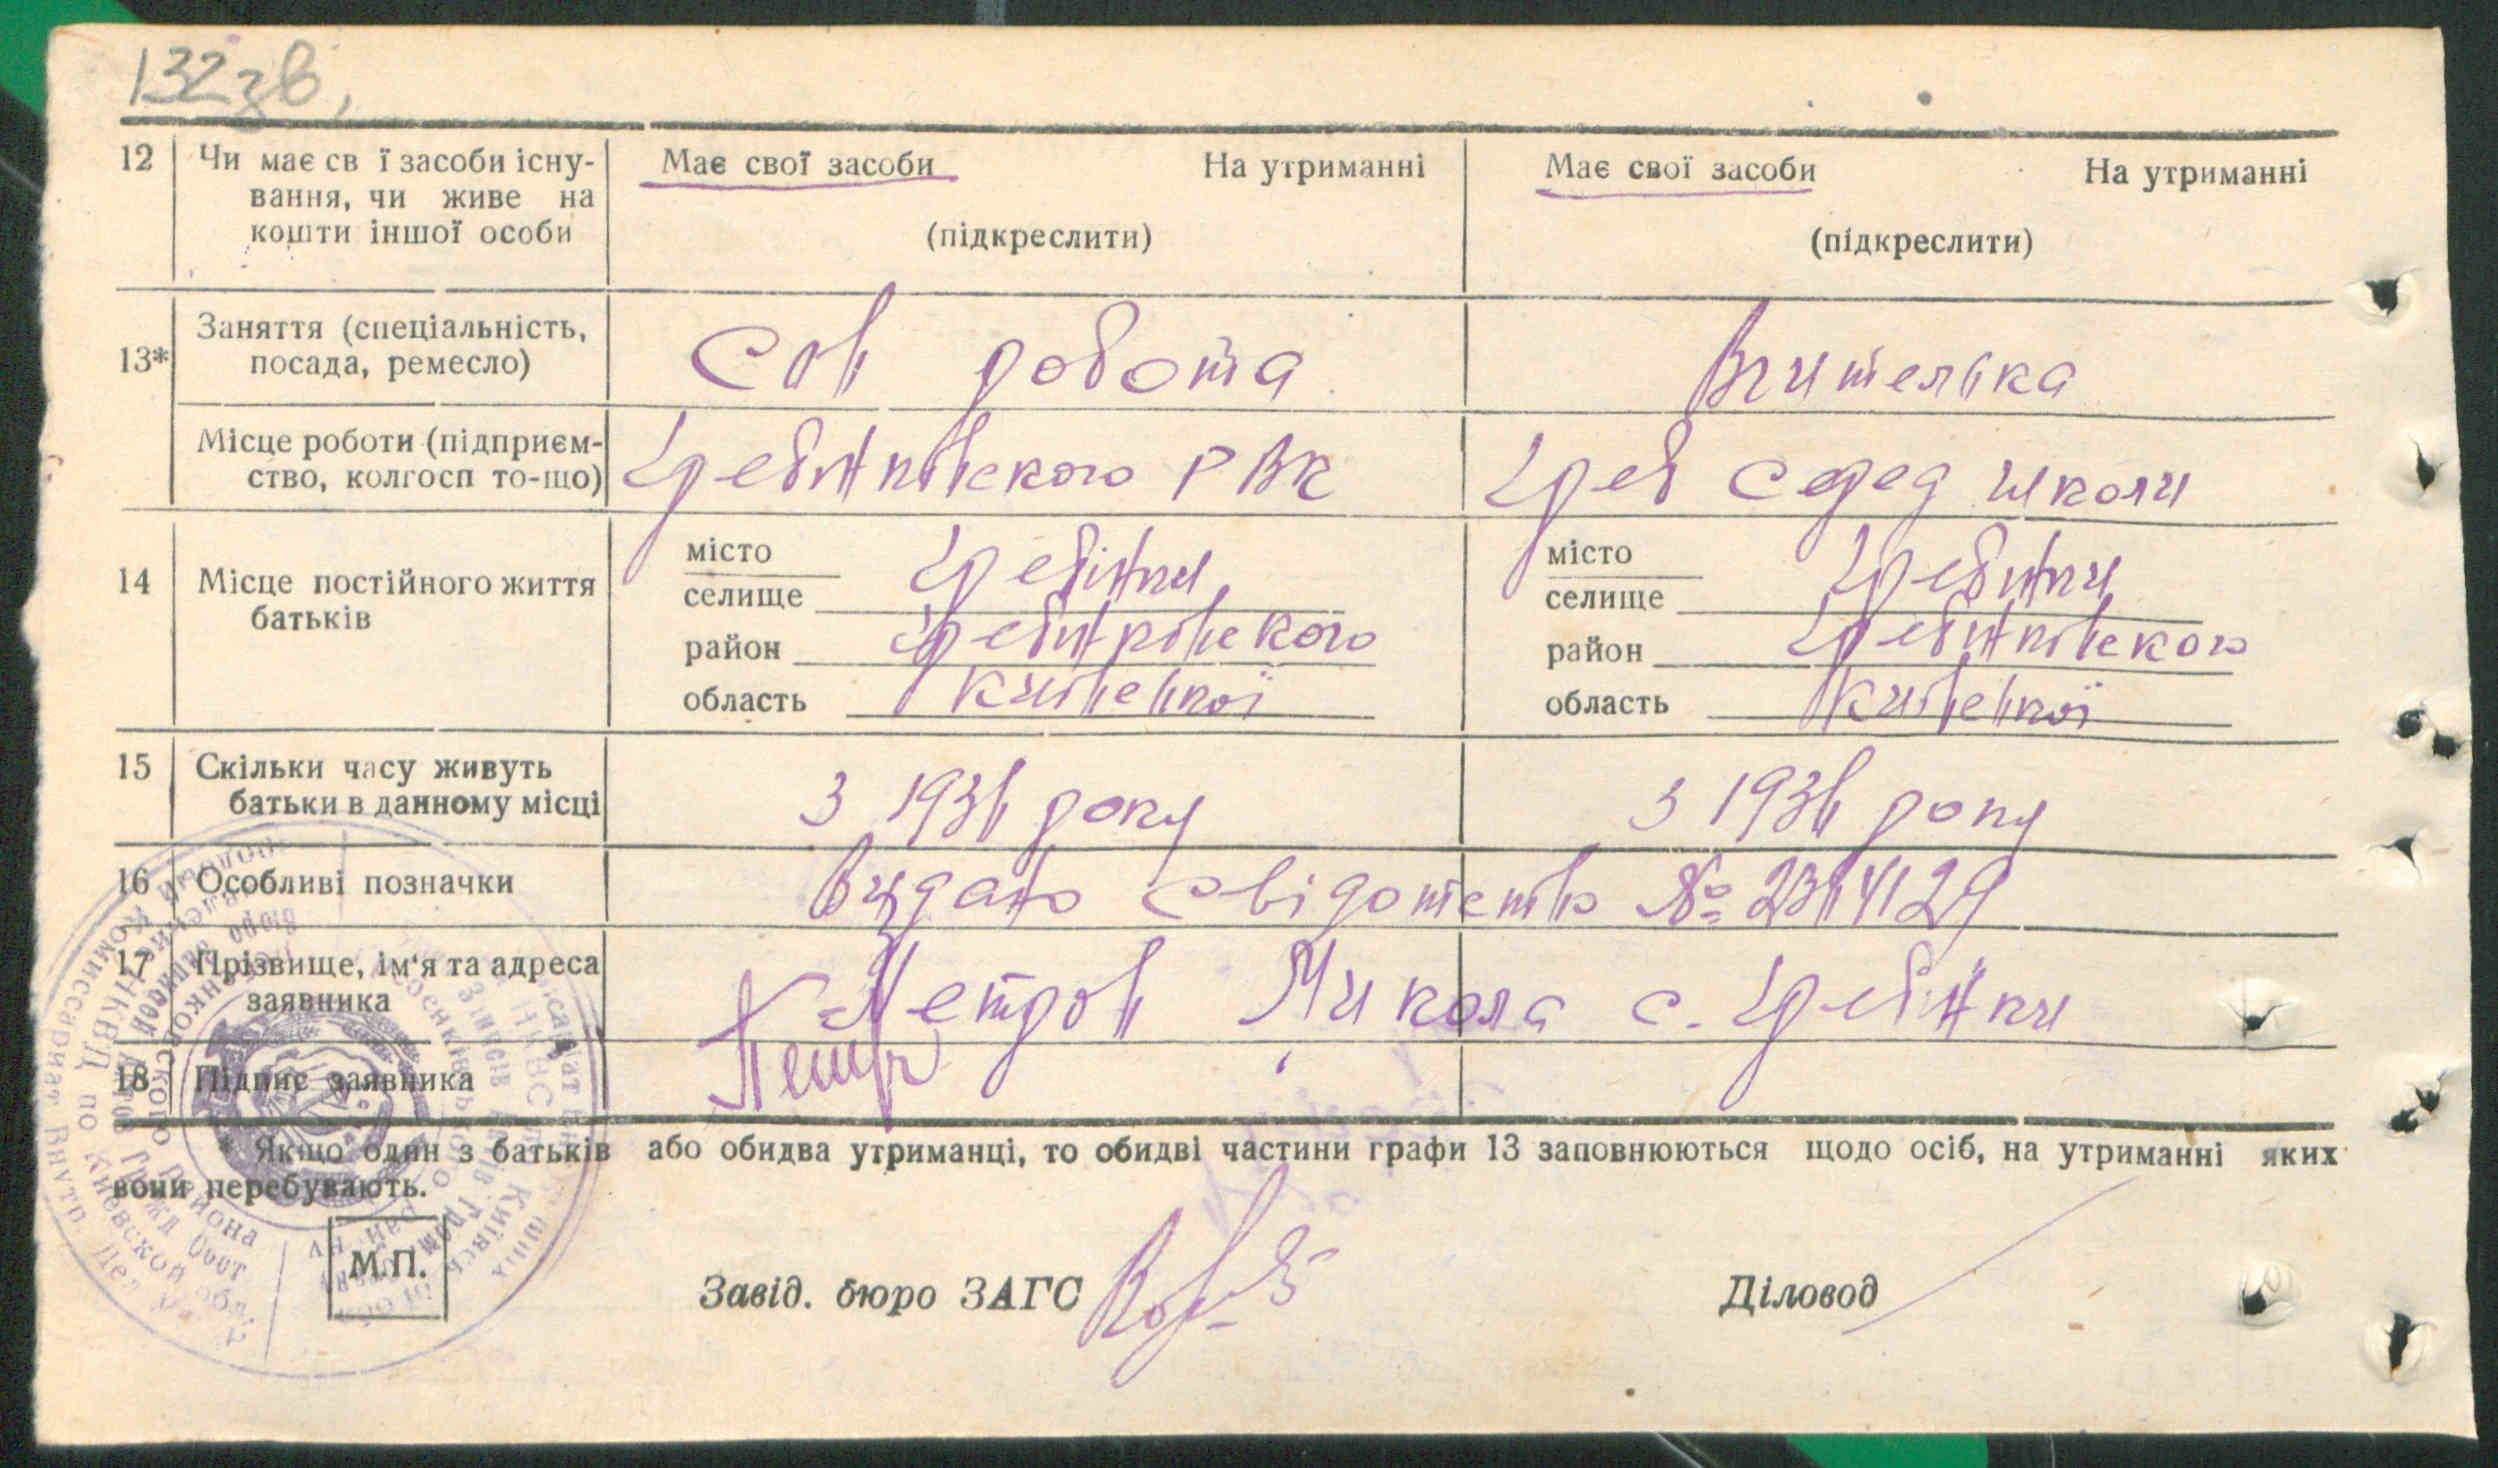 132зв,
12 Чи має св ї засоби існу- Має свої засоби На утриманні Має свої засоби На утриманні
вання, чи живе на
кошти іншої особи (підкреслити) (підкреслити)
Заняття (спеціальність,
13* посада, ремесло) Сов робота Вчителька
Місце роботи (підприєм-
ство, колгосп то-що) Гребінківського РВК Греб серед школи
14 Місце постійного життя
батьків
місто
селище Гребінки
район Гребінківського
область Київської
місто
селище Гребінки
район Гребінківського
область Київської
15 Скільки часу живуть
батьки в данному місці з 1936 року з 1936 року
16 Особливі позначки Видано свідотство №
17 Прізвище, ім'я та адреса
заявника Петров Микола с. Гребінки
18 Підпис заявника Петр
* Якщо один з батьків або обидва утриманці, то обидві частини графи 13 заповнюються щодо осіб, на утриманні яких
вони перебувають.
М.П.
Завід. бюро ЗАГС Діловод